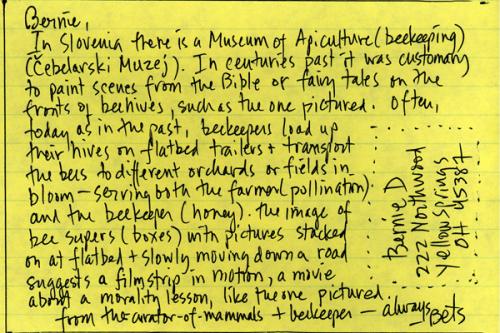 Bernie,
In Slovenia there is a Museum of Apiculture (beekeeping)
(Čebelarski Muzej). In centuries past it was customary
to paint scenes from the Bible or fairy tales on the
fronts of beehives, such as the one pictured. Often,
today as in the past, beekeepers load up
their hives on flatbed trailers + transport
the bees to different orchards or fields in
bloom — serving both the farmer (pollination)
and the beekeeper (honey). The image of
bee supers (boxes) with pictures stacked
on at flatbed + slowly moving down a road
suggests a filmstrip in motion, a movie
about a morality lesson, like the one pictured.
from the curator-of-mammals + beekeeper — always, Bets
Bernie D
222 Northwood
Yellow Springs
OH 45387